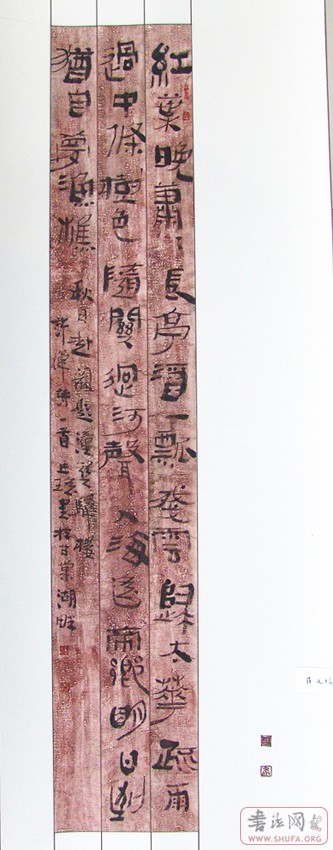 紅葉晚蕭〻長亭酒一瓢殘雲歸太華疏雨
過中條樹色隨關迥河聲入海遥帝鄉明日到
猶自夢漁樵
秋日赴闕題潼關驛樓
許渾詩一首
湖畔
书法网
WWW.SHUFA.ORG